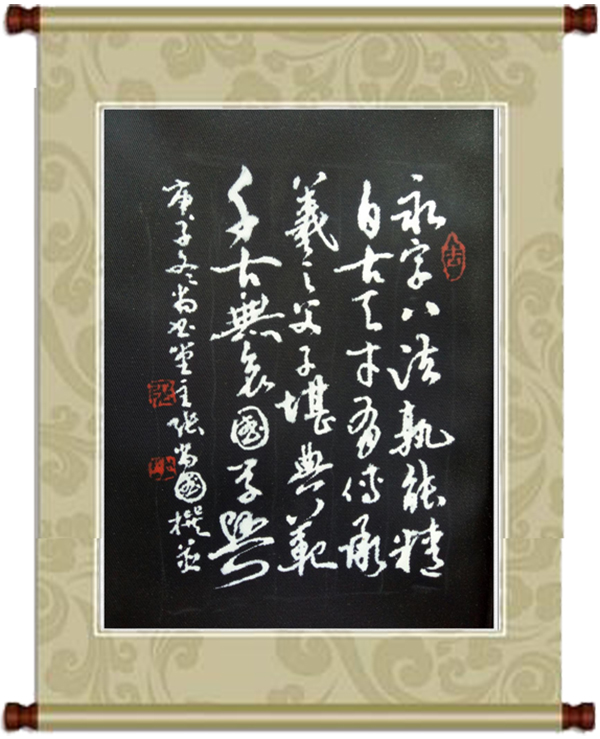 永字八法孰能精
自古天才有傳承
羲之父子堪典範
千古無哀國子學
庚子冬尚書堂主張尚國撰並